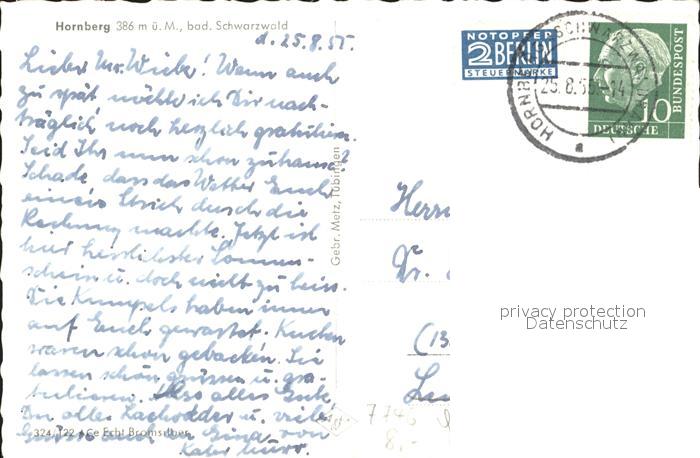 Hornberg 386 m ü. M., bad. Schwarzwald
d. 25.8.55.
Lieber Wiebe! Wenn auch
zu spät, möchte ich Dir nach-
träglich noch herzlich gratulieren.
Seid Ihr nun schon zuhause?
Schade dass das Wetter Euch
einen Strich durch die
Rechnung machte. Jetzt ist
hier herrlichster Sonnen-
schein u. doch nicht zu heiss.
Die Kumpels haben immer
auf Euch gewartet. Kuchen
waren schon gebacken. Sie
lassen schön grüssen u. gra-
tulieren. Also alles Gute
Dir alter u. viele
Grüsse von
Kater Murr.
324/122 Echt Bromsilber
Gebr. Metz, Tübingen
NOTOPFER
2 BERLIN
STEUERMARKE
HORNBERG (SCHWARZWALDBAHN)
25.8.55.-14
a
10
DEUTSCHE
BUNDESPOST
Herrn
Dr.
(13
privacy protection
Datenschutz
8,-